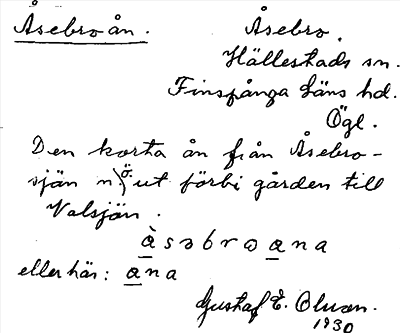 Åsebroån. Åsebro,
Hällestads sn.
Finspånga läns hd.
Ögl.
Den korta ån från Åsebro-
sjön n\ö. ut förbi gården till
Valsjön.
àsəbrωana
eller här: ana
Gustaf E. Olsson.
1930